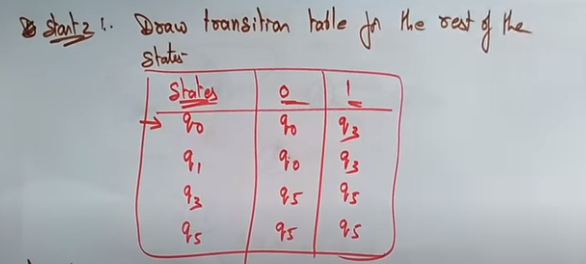 Start 2 :. Draw transition table for the rest of the
states
States 0 1
→ q0 q0 q3
q1 q0 q3
q3 q5 q5
q5 q5 q5